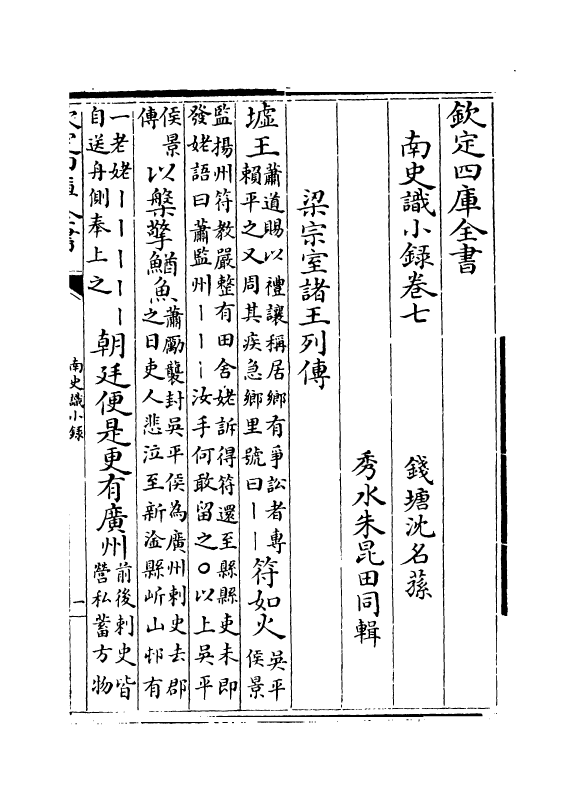 欽定四庫全書
南史識小録卷七 錢塘沈名蓀
秀水朱昆田同輯
梁宗室諸王列傳
墟王 蕭道賜以禮讓稱居鄉有爭訟者專
賴平之又周其疾急鄉里號曰丨丨 符如火 吳平
侯景
監揚州符教嚴整有田舍姥訴得符還至縣縣吏未即
發姥語曰蕭監州丨丨丨汝手何敢留之〇以上吳平
侯景
傳 以槃擎鰌魚 蕭勵襲封吳平侯為廣州刺史去郡
之日吏人悲泣至新淦縣岓山邨有
一老姥丨丨丨丨丨
自送舟側奉上之 朝廷便是更有廣州 前後刺史皆
營私蓄方物
欽定四庫全書
南史識小録
一